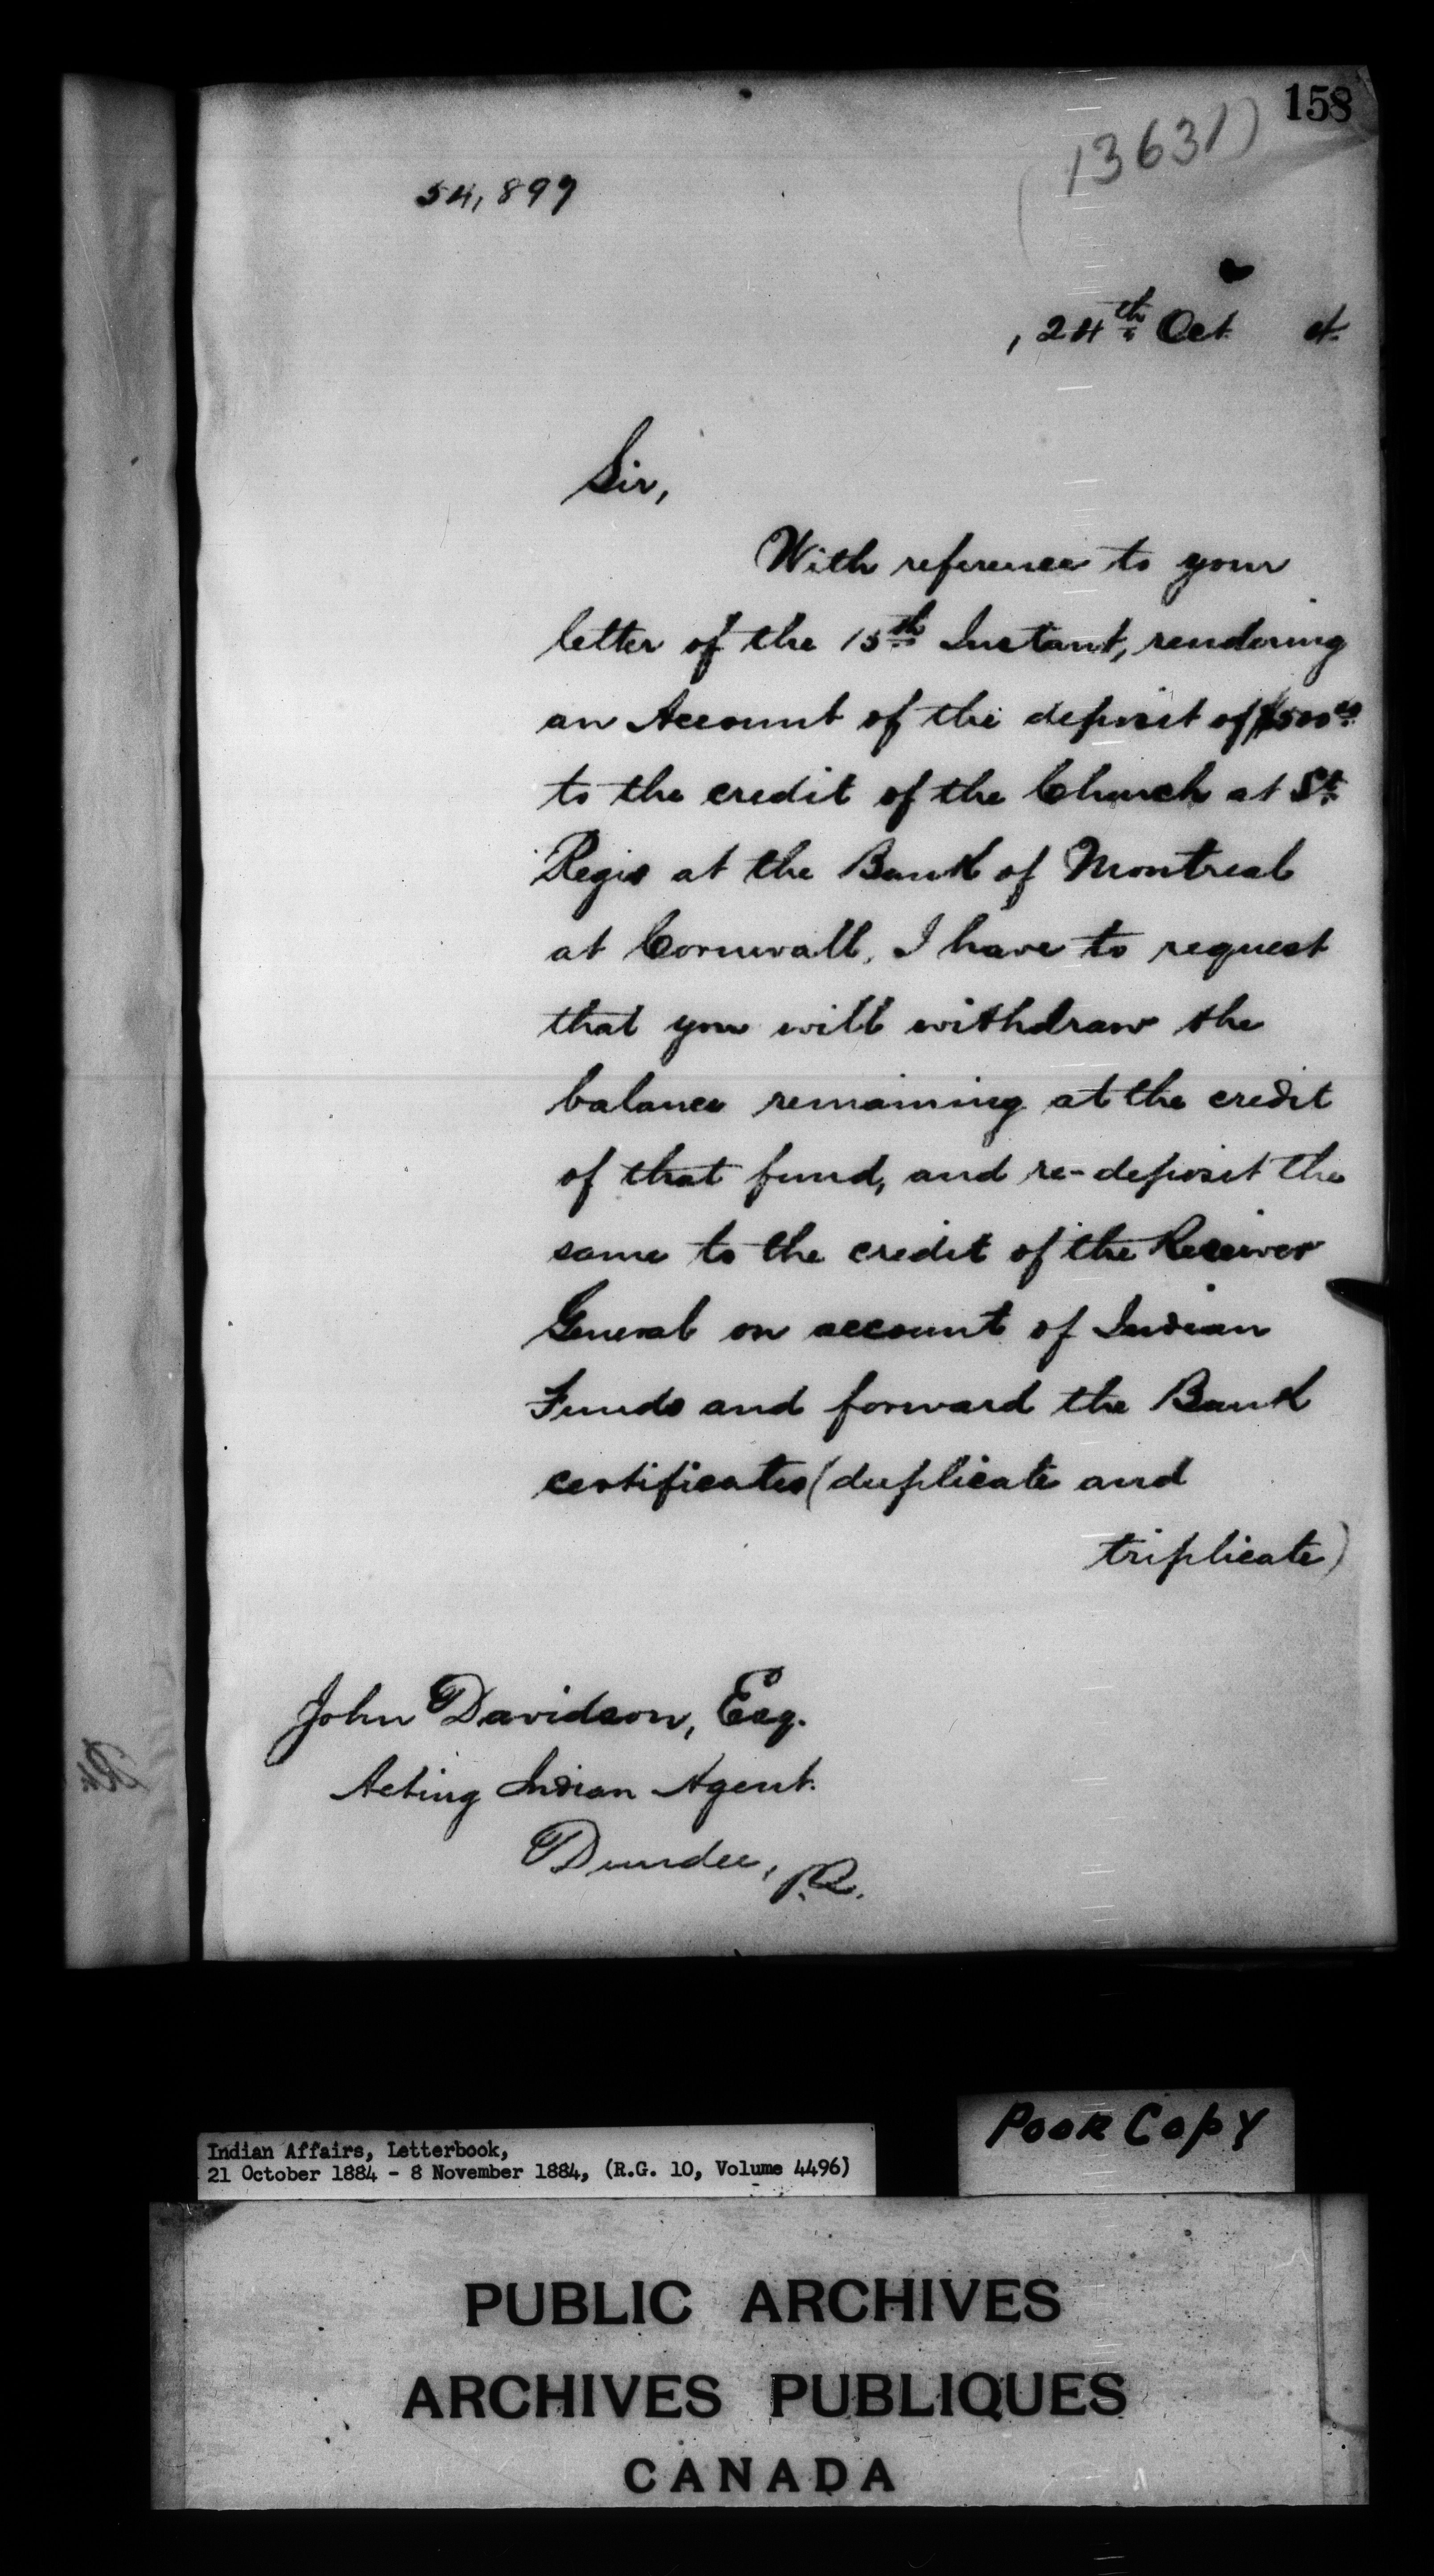 158
(13631)
54,899
, 24th Oct 4
Sir,
With reference to your
letter of the 15th Instant, rendering
an Account of the deposit of $500.00
to the credit of the Church at St.
Regis at the Bank of Montreal
at Cornwall, I have to request
that you will withdraw the
balance remaining at the credit
of that fund, and re-deposit the
same to the credit of the Receiver
General on account of Indian
Funds and forward the Bank
certificates (duplicate and
triplicate)
John Davidson, Esq.
Acting Indian Agent.
Dundee, P.Q.
Indian Affairs, Letterbook,
21 October 1884 - 8 November 1884, (R.G. 10, Volume 4496)
POOR COPY
PUBLIC ARCHIVES
ARCHIVES PUBLIQUES
CANADA